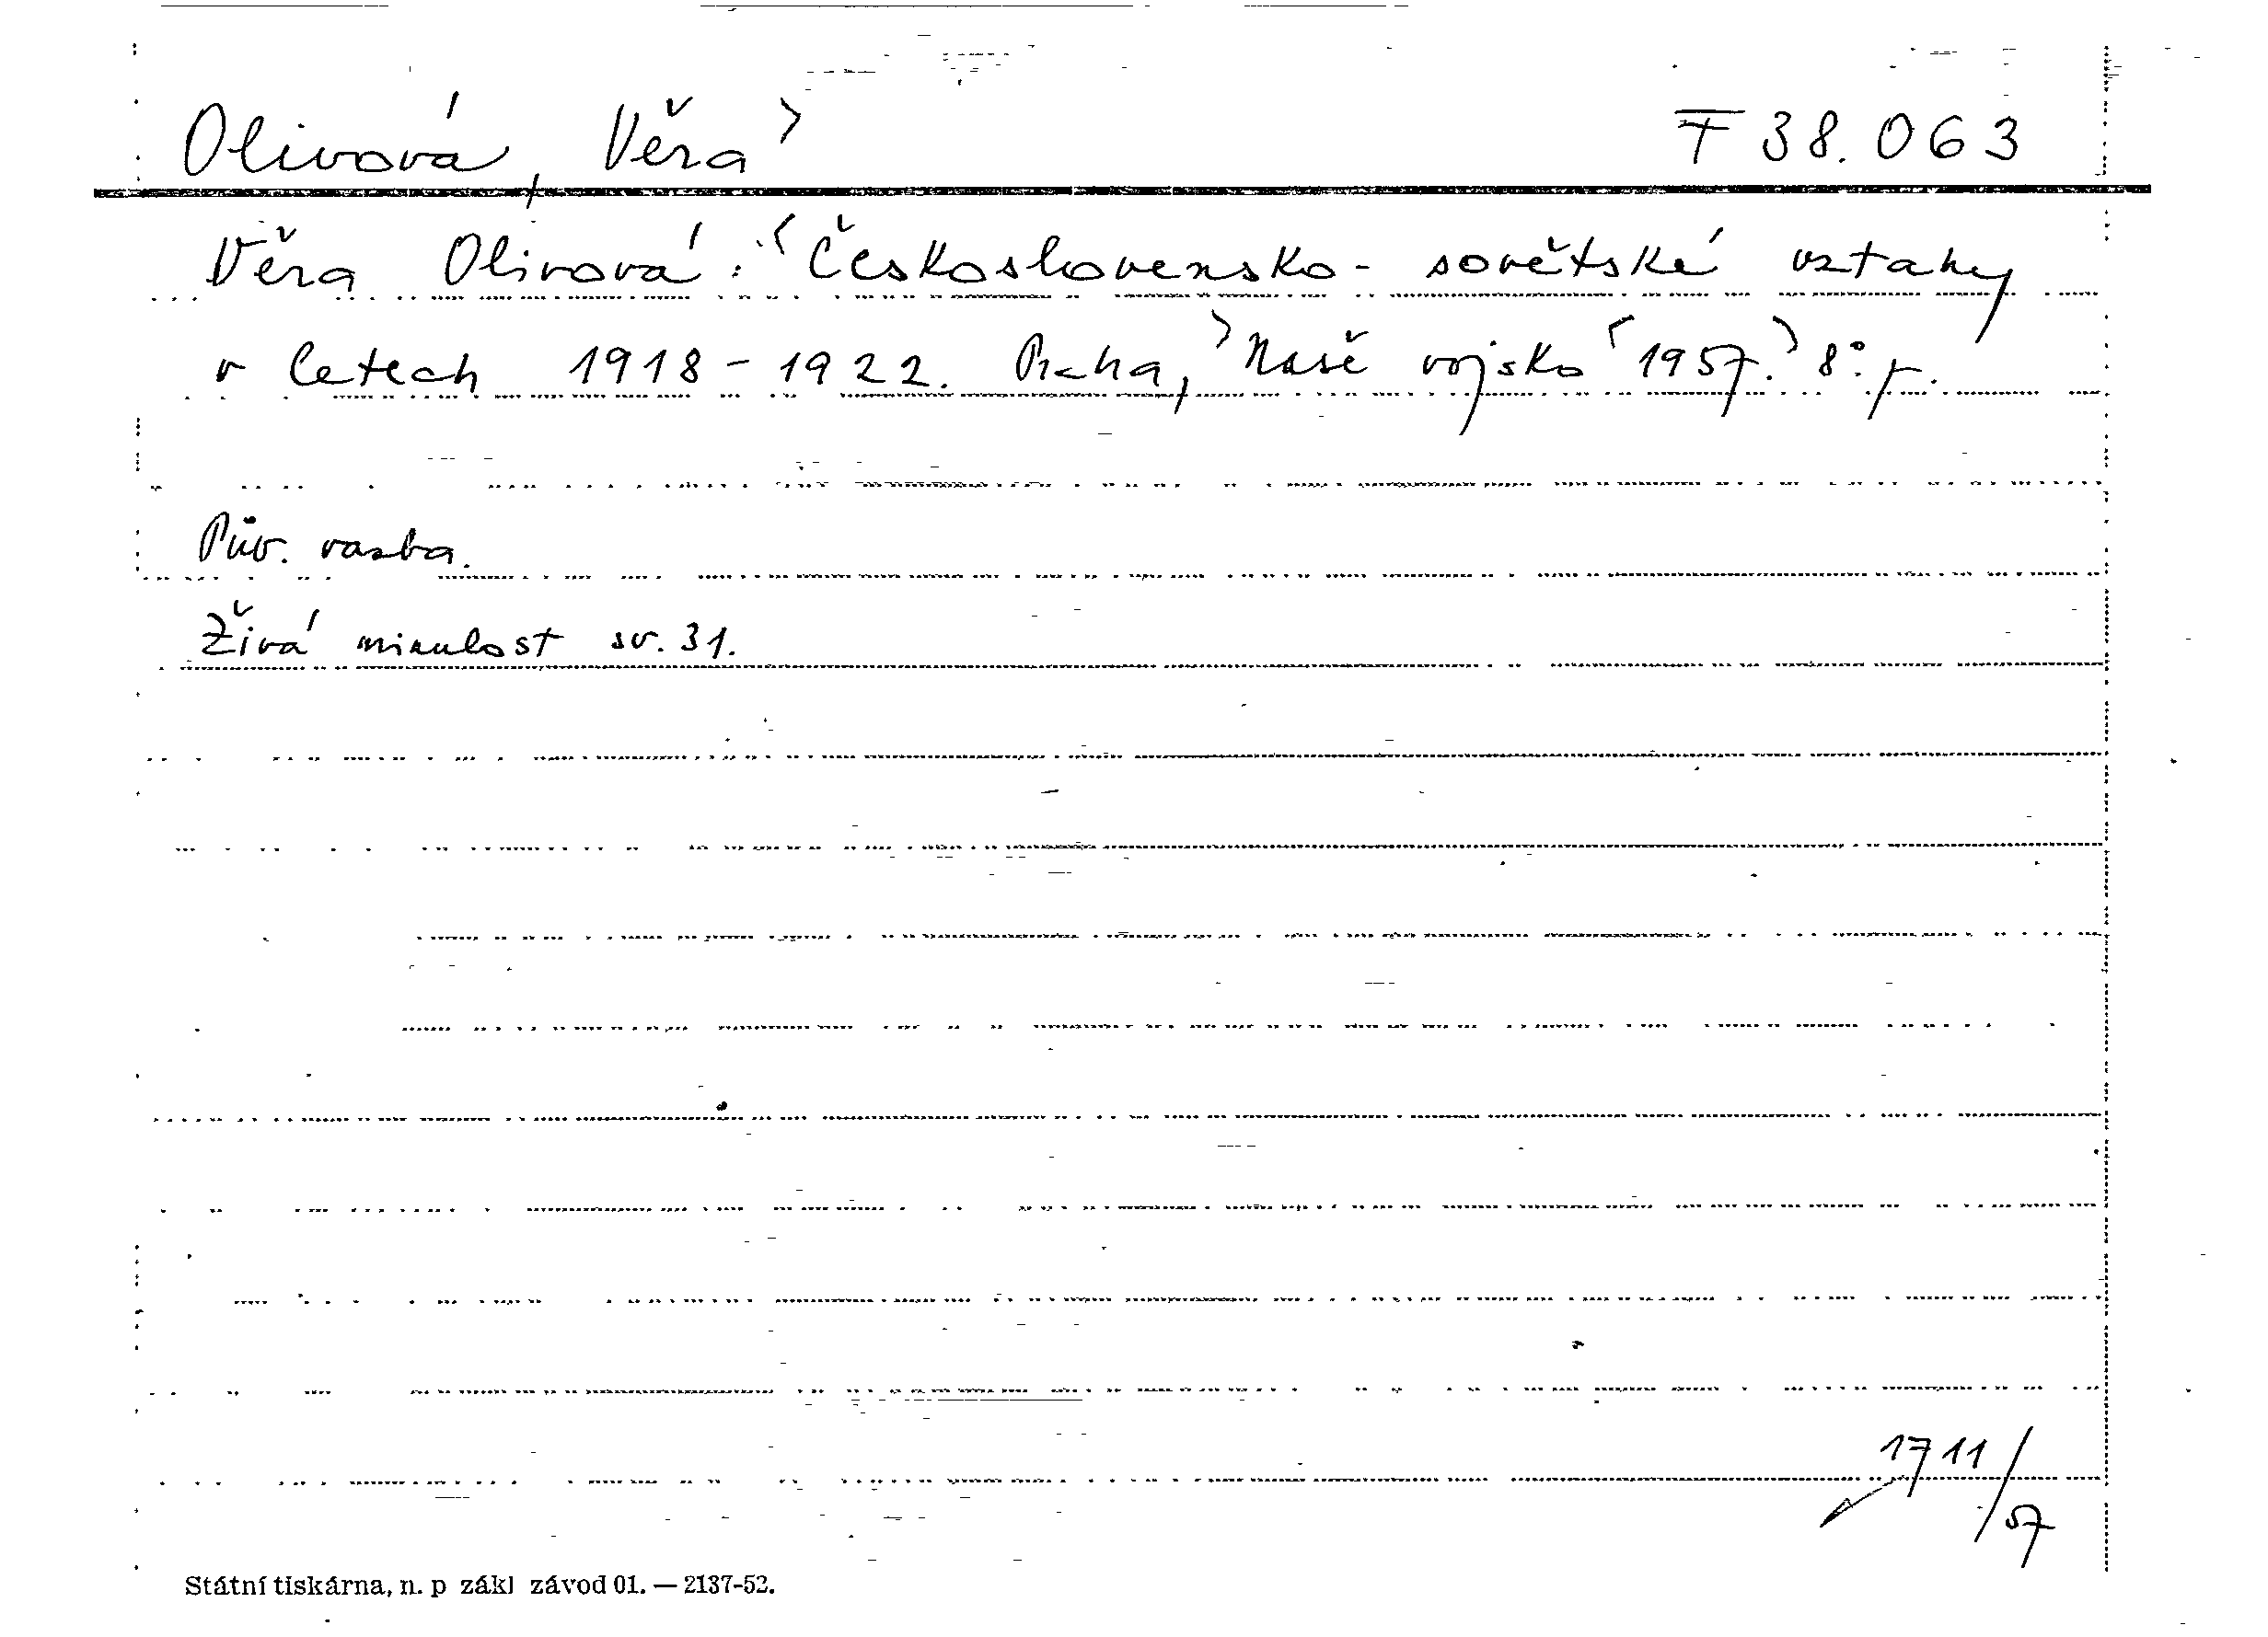 Olivová, Věra> F 38.063
Věra Olivová: <Československo-sovětské vztahy
v letech 1918-1922. Praha, >Naše vojsko <1957.> 8°. p.
Pův. vazba.
Živá minulost sv. 31.
1711/57
Státní tiskárna, n. p zákl závod 01. — 2137-52.